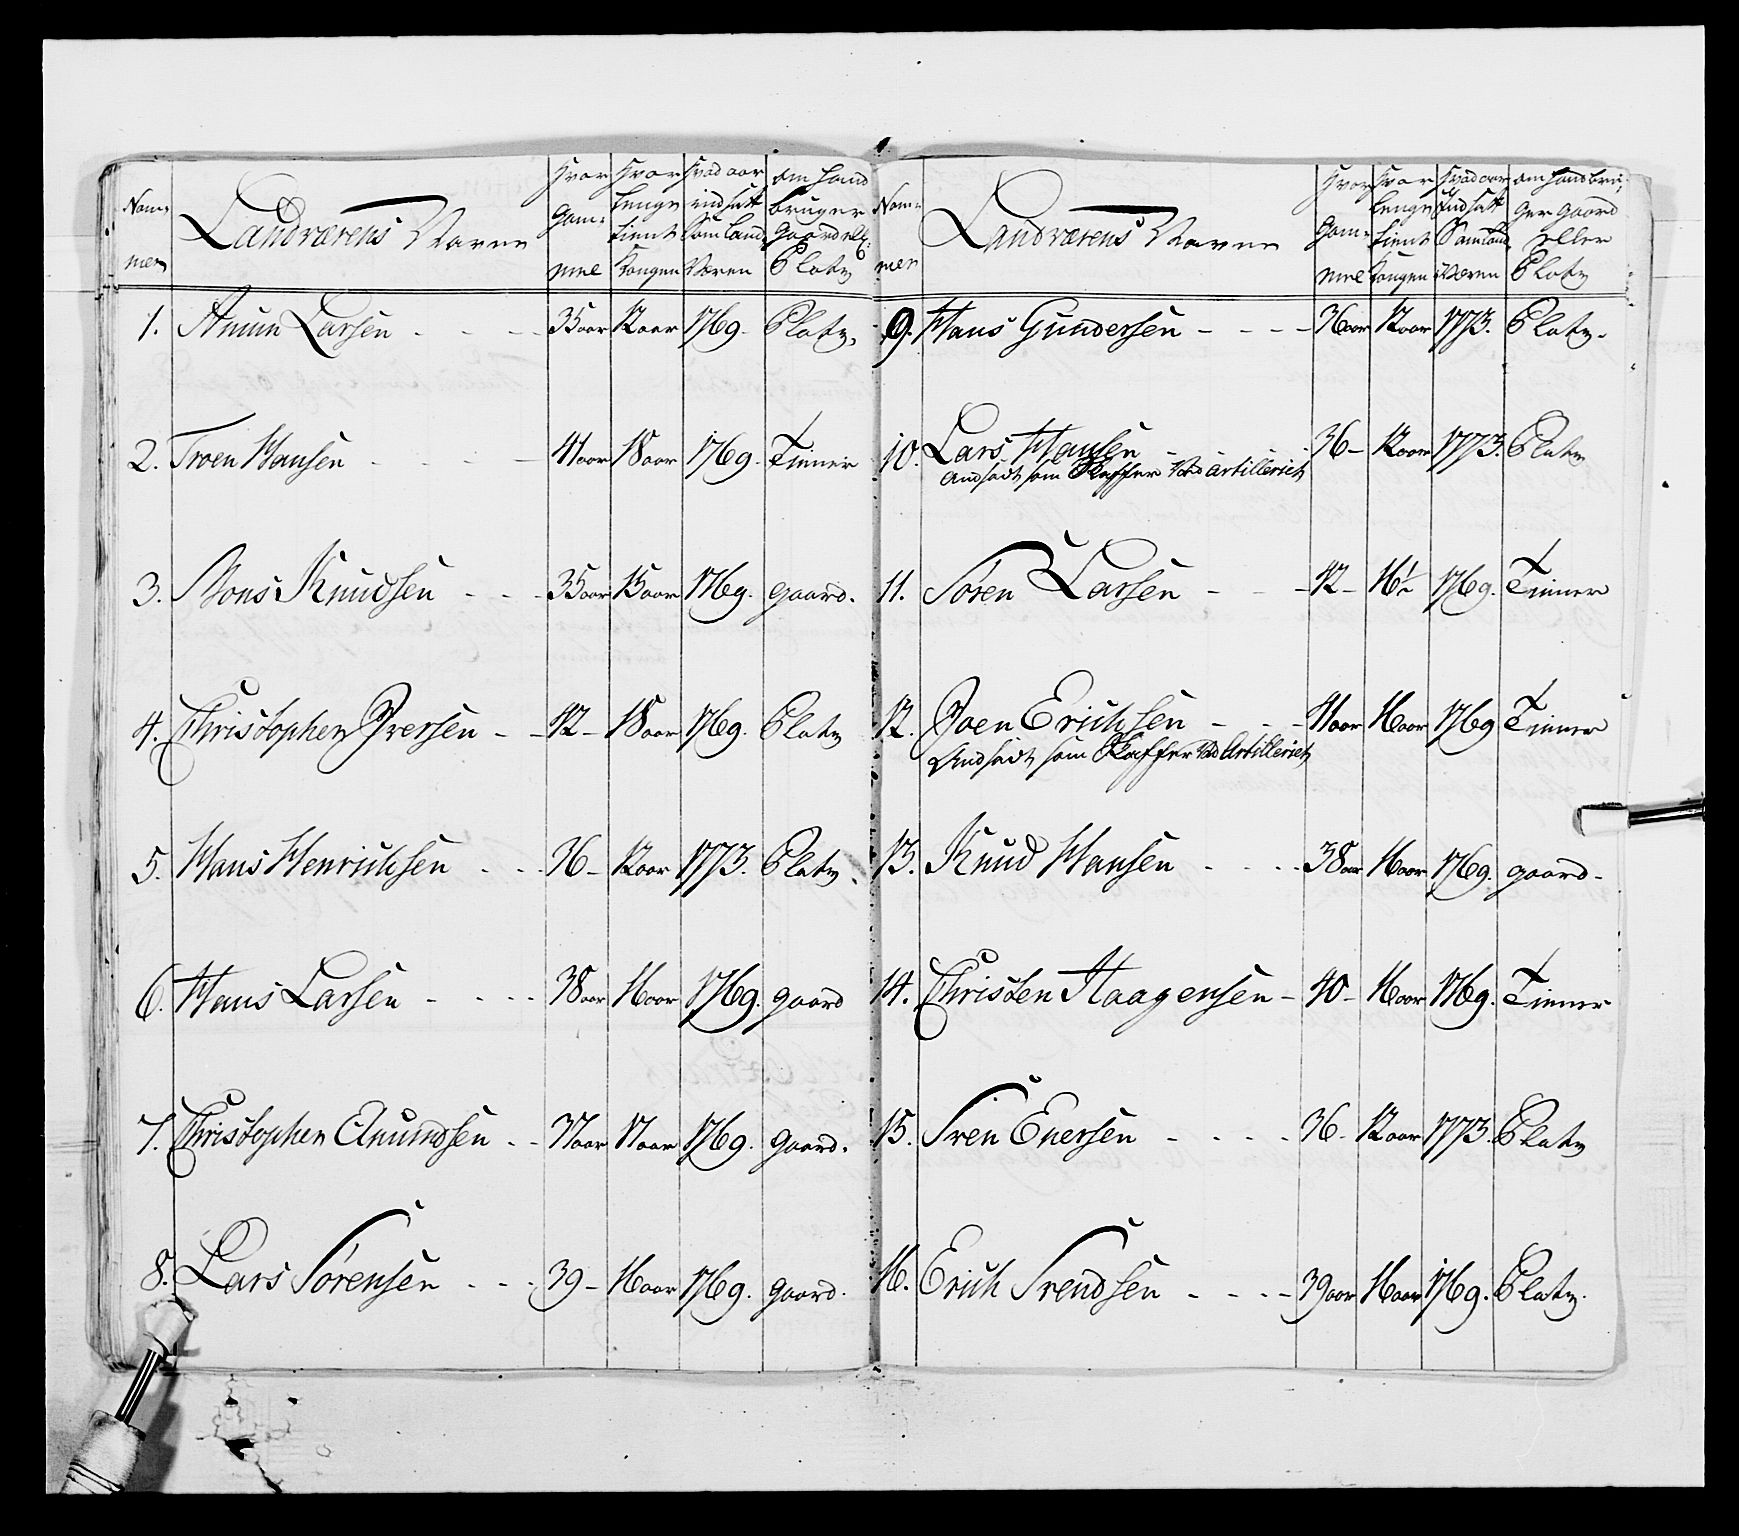 Nom-
mer
Landværens Navne
Hvor
Gam-
mel
Hvor
lenge
tient
Kongen
Hvad aar
indsatt
Som Land-
Væren
om hand
bruger
Gaard ell:
Platz
1. Amun Larsen - - - - 35 aar 12 aar 1769. Platz.
2. Troen Hansen - - - - 41 aar 18 aar 1769. Tiener
3. Mons Knudsen - - - 35 aar 15 aar 1769. gaard.
4. Christopher Iversen - - 42 - 18 aar 1769. Platz
5. Hans Henrichsen - - - 36 - 12 aar 1773. Platz.
6. Hans Larsen - - - - 38 aar 16 aar 1769. gaard
7. Christopher Amundsen - - 37 aar 17 aar 1769. gaard.
8. Lars Sørensen - - - 39 - 16 aar 1769. gaard.
Nom-
mer
Landværens Navne
Hvor
Gam-
mel
Hvor
lenge
tient
Kongen
Hvad aar
Indsatt
Som Land-
Væren
om hand bru-
ger gaard
eller
Platz
9. Hans Gundersen - - - - 36 aar 12 aar 1773. Platz.
10. Lars Hansen - - - 36 - 12 aar 1773. Platz
Andsadt som Kaffer Ved Artilleriet
11. Sören Larsen - - - 42 - 16½ 1769. Tiener
12. Joen Erichsen - - - 41 aar 16 aar 1769 Tiener
Andsadt som Kaffer Ved Artilleriet
13. Knud Hansen - - - - 38 aar 16 aar 1769. gaard -
14. Christen Haagensen - 40 - 16 aar 1769. Tiener
15. Sven Enersen - - - - 36 - 12 aar 1773. Platz
16. Erich Svendsen - - - - 39 aar 16 aar 1769. Platz.